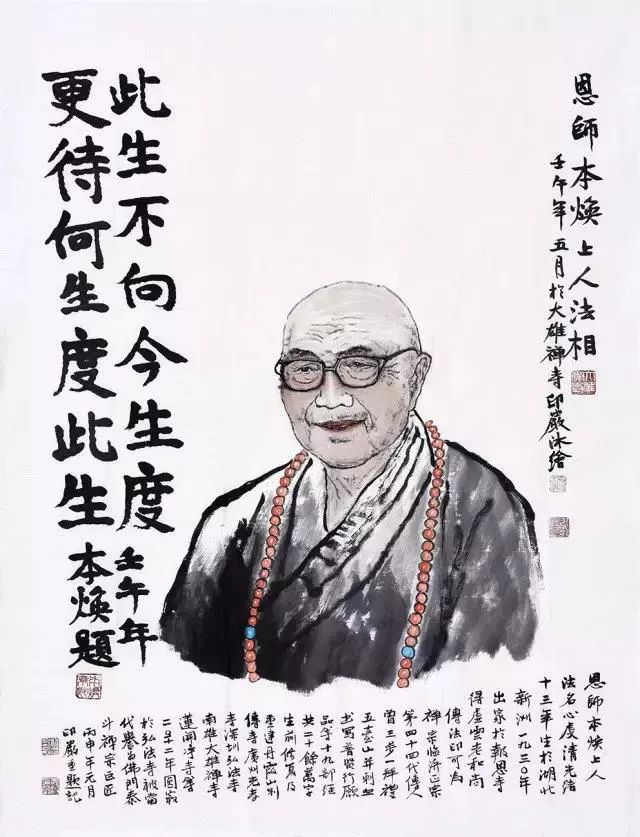 恩師本煥上人法相
壬午年五月於大雄禪寺印嚴沐繪
此生不向今生度 壬午年
更待何生度此生 本煥題
恩師本煥上人
法名心虔清光緒
十三年生於湖北
新洲一九三〇年
出家於報恩寺
得虛雲老和尚
傳法印可為
禪宗臨濟正宗
第四十四代傳人
曾三步一拜禮
五臺山并刺血
书寫普賢行願
品等十九部經
共二十餘萬字
生前修復及
重建丹霞山別
傳寺廣州光孝
寺深圳弘法寺
南雄大雄禪寺
蓮開淨寺等
二〇一二年圓寂
於弘法寺被當
代譽為佛門泰
斗禪宗巨匠
丙申年元月
印嚴重題記